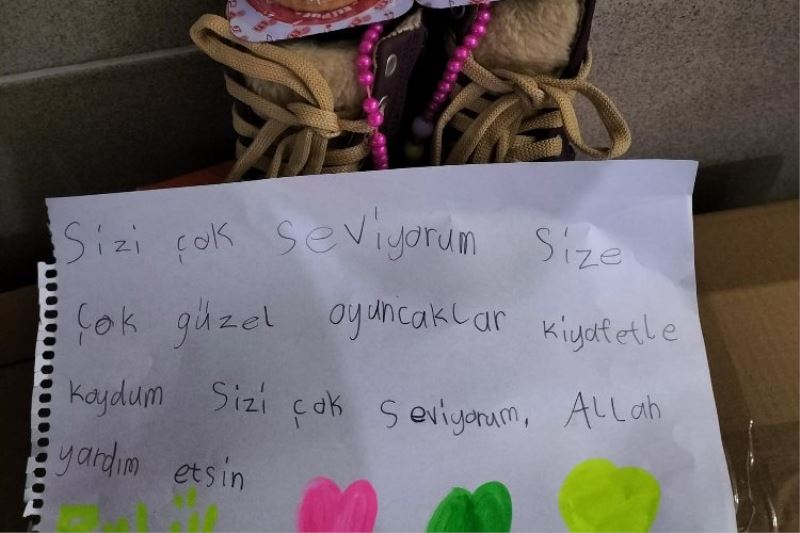 Sizi çok seviyorum Size
Çok güzel oyuncaklar kiyafetle
koydum Sizi çok seviyorum, Allah
yardım etsin